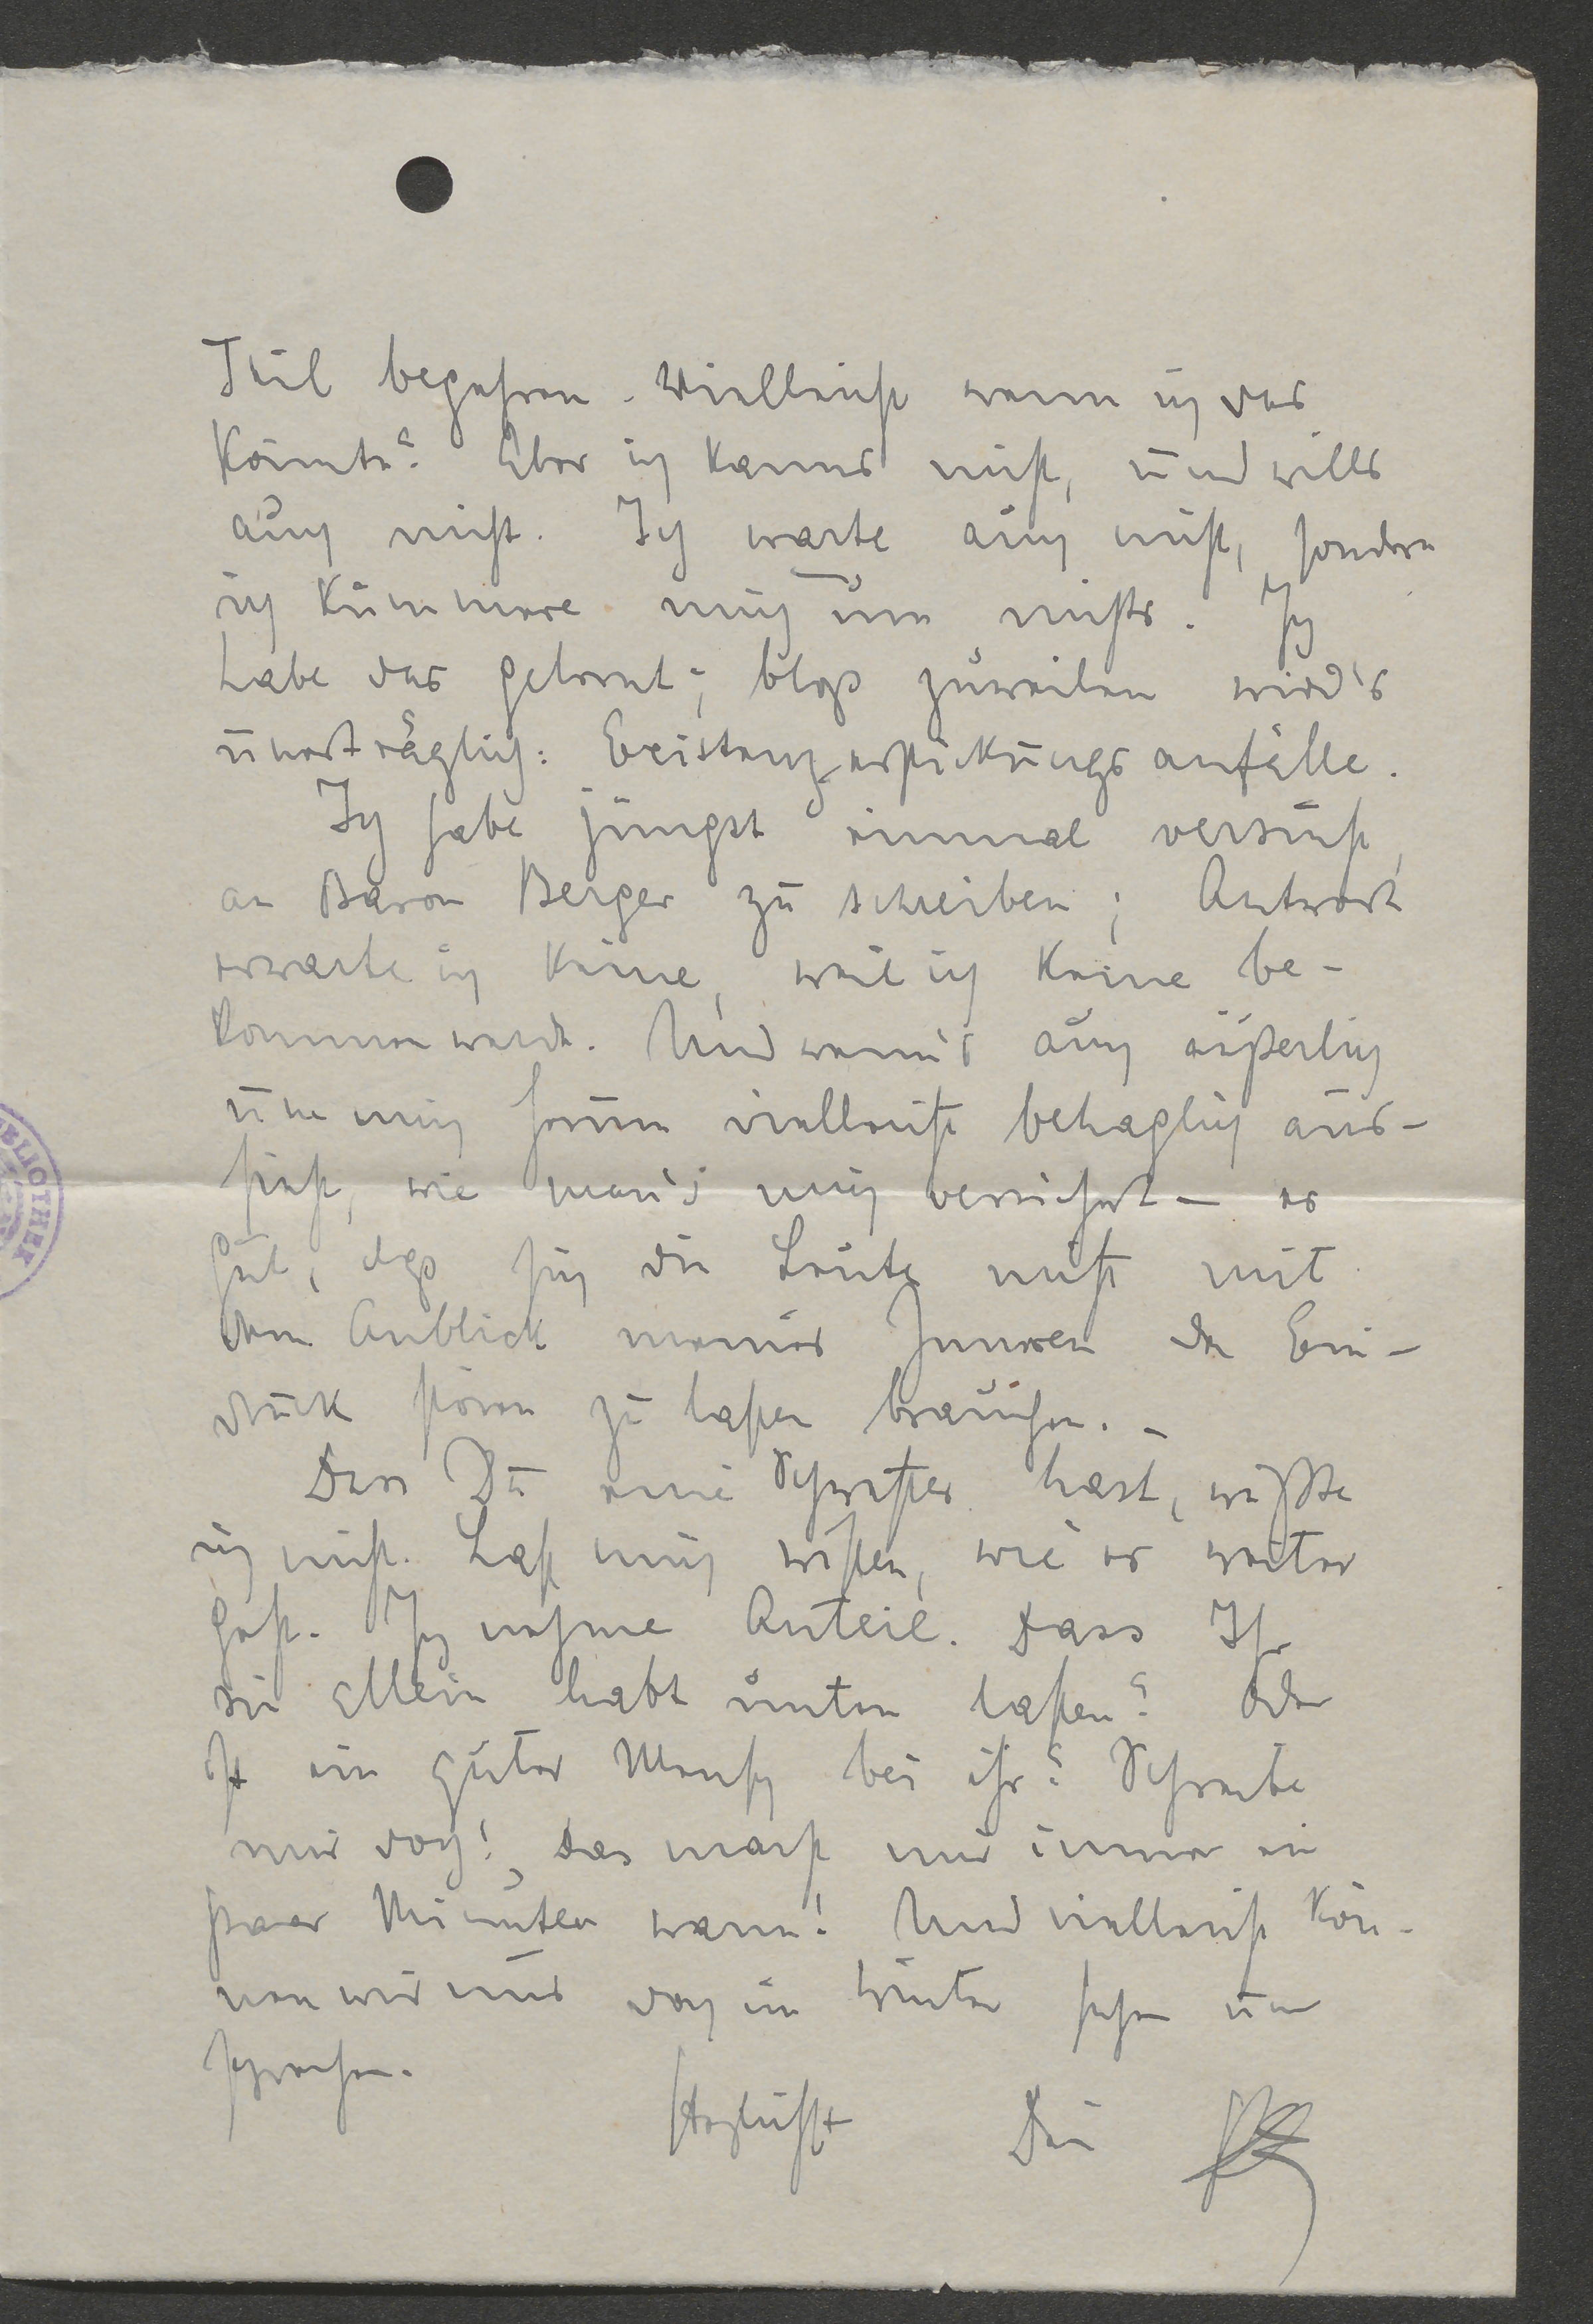 Teil begehren. Vielleicht wenn ich das
könnte? Aber ich kanns nicht, und wills
auch nicht. Ich warte auch nicht, sondern
ich kümmere mich um nichts. Ich
habe das gelernt; bloß zuweilen wird's
unerträglich: Existenzerstickungsanfälle.
Ich habe jüngst einmal versucht,
an Baron Berger zu schreiben; Antwort
erwarte ich keine, weil ich keine be-
kommen werde. Und wenn's auch äußerlich
um mich herum vielleicht behaglich aus-
sieht, wie man's mich versichert – es
gut, daß sich die Leute nicht mit
dem Anblick meines Inneren den Ein-
druck stören zu lassen brauchen. –
Dass Du eine Schwester hast, wußte
ich nicht. Laß mich wissen, wie es weiter
geht. Ich nehme Anteil. Dass Ihr
sie allein habt unten lassen? Oder
ist ein guter Mensch bei ihr? Schreibe
mir doch! Das macht mir immer ein
paar Minuten warm! Und vielleicht kön-
nen wir uns doch im Winter sehen und
sprechen.
Herzlichst Dein
BLIOTHEK